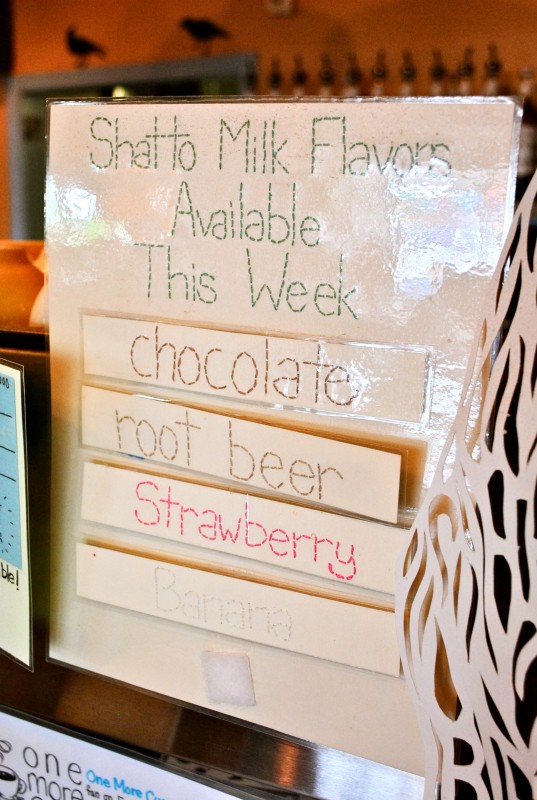 Shatto Milk Flavors
Available
This Week
chocolate
root beer
Strawberry
Banana
ble!
one
more
One More Cu
fan on